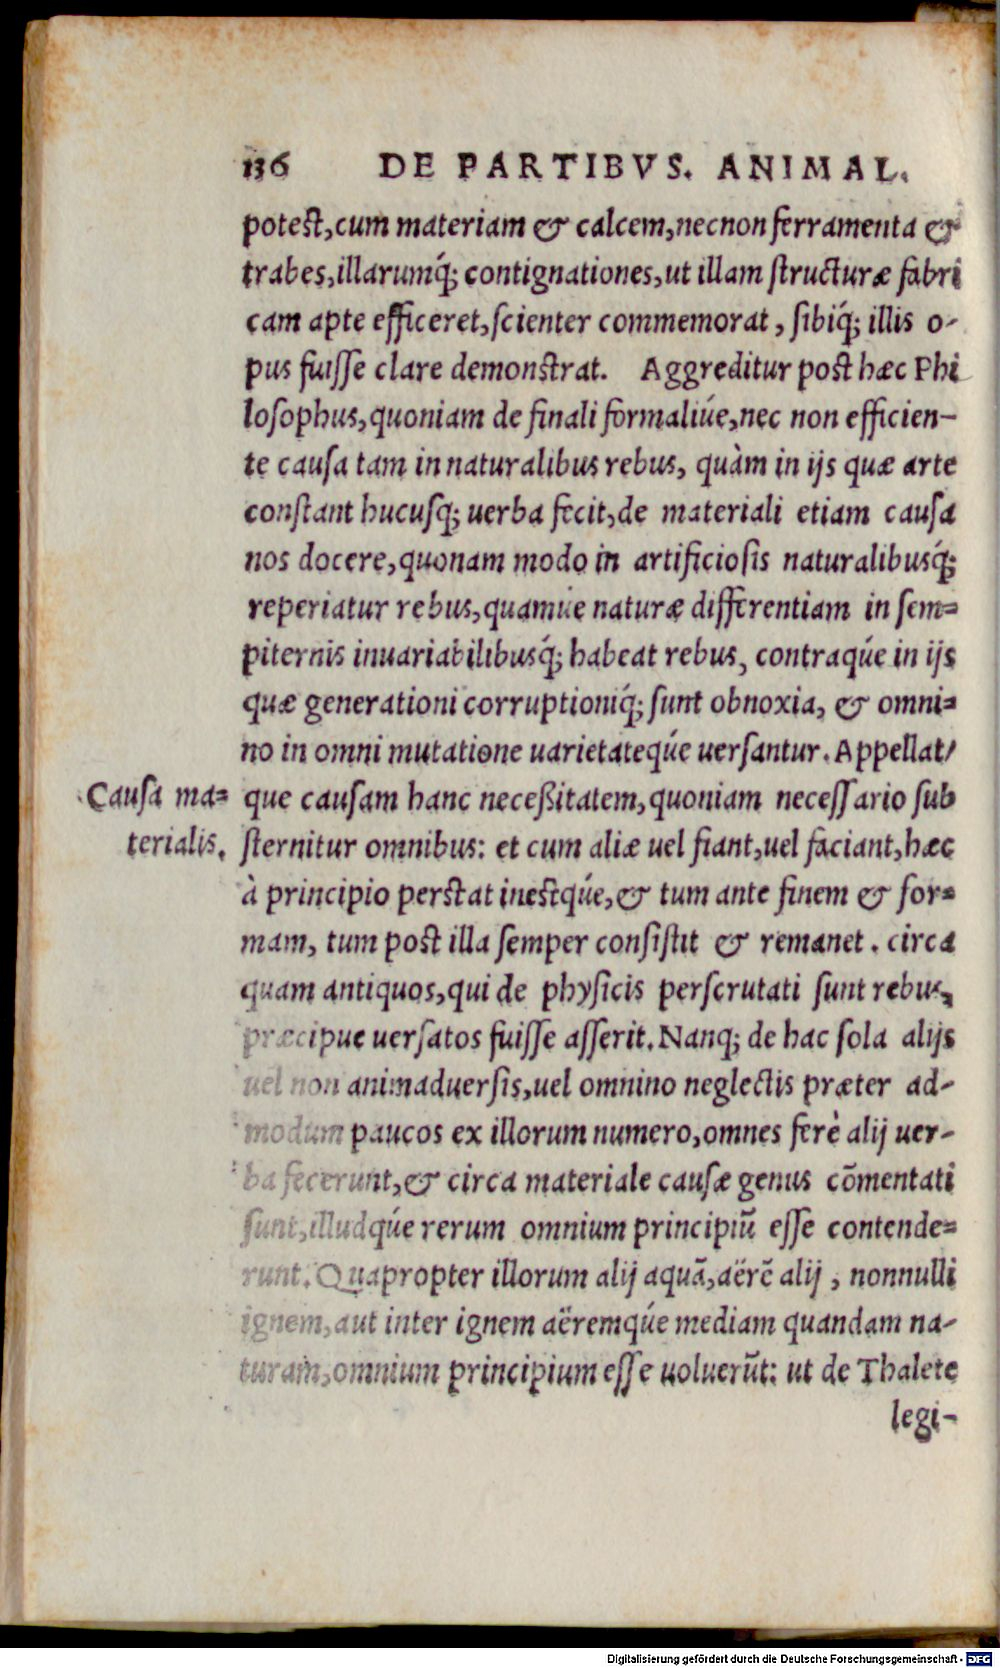 136 DE PARTIBVS. ANIMAL.
potest, cum materiam & calcem, necnon ferramenta &
trabes, illarumq́; contignationes, ut illam structuræ fabri
cam apte efficeret, scienter commemorat, sibiq́; illis o-
pus fuisse clare demonstrat. Aggreditur post hæc Phi
losophus, quoniam de finali formaliúe, nec non efficien-
te causa tam in naturalibus rebus, quàm in ijs quæ arte
constant hucusq; uerba fecit, de materiali etiam causa
nos docere, quonam modo in artificiosis naturalibusq́;
reperiatur rebus, quamue naturæ differentiam in sem=
piternis inuariabilibusq́; habeat rebus, contraqúe in ijs
quæ generationi corruptioniq́; sunt obnoxia, & omni=
no in omni mutatione uarietateqúe uersantur. Appellat/
Causa ma= que causam hanc neceßitatem, quoniam necessario sub
terialis. sternitur omnibus: et cum aliæ uel fiant, uel faciant, hæc
à principio perstat inestqúe, & tum ante finem & for=
mam, tum post illa semper consistit & remanet. circa
quam antiquos, qui de physicis perscrutati sunt rebus,
præcipue uersatos fuisse asserit. Nanq; de hac sola alijs
uel non animaduersis, uel omnino neglectis præter ad-
modum paucos ex illorum numero, omnes ferè alij uer-
ba fecerunt, & circa materiale causæ genus cõmentati
sunt, illudqúe rerum omnium principiũ esse contende=
runt. Quapropter illorum alij aquã, aërẽ alij, nonnulli
ignem, aut inter ignem aëremqúe mediam quandam na-
turam, omnium principium esse uoluerũt: ut de Thalete
legi-
Digitalisierung gefördert durch die Deutsche Forschungsgemeinschaft - DFG